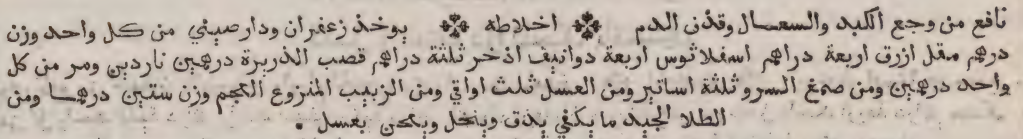 نافع من وجع الكبد والسعال وقذف الدم ❊ اخلاطه ❊ يوخذ زعفران ودارصيني من كل واحد وزن
درهم مقل ازرق اربعة دراهم اسفلاثوس اربعة دوانيق اذخر ثلثة دراهم قصب الذريرة درهمين ناردين ومر من كل
واحد درهمين ومن صمغ السرو ثلثة اساتير ومن العسل ثلث اواقي ومن الزبيب المنزوع العجم وزن ستين درهما ومن
الطلا الجيد ما يكفي يدق وينخل ويعجن بعسل .